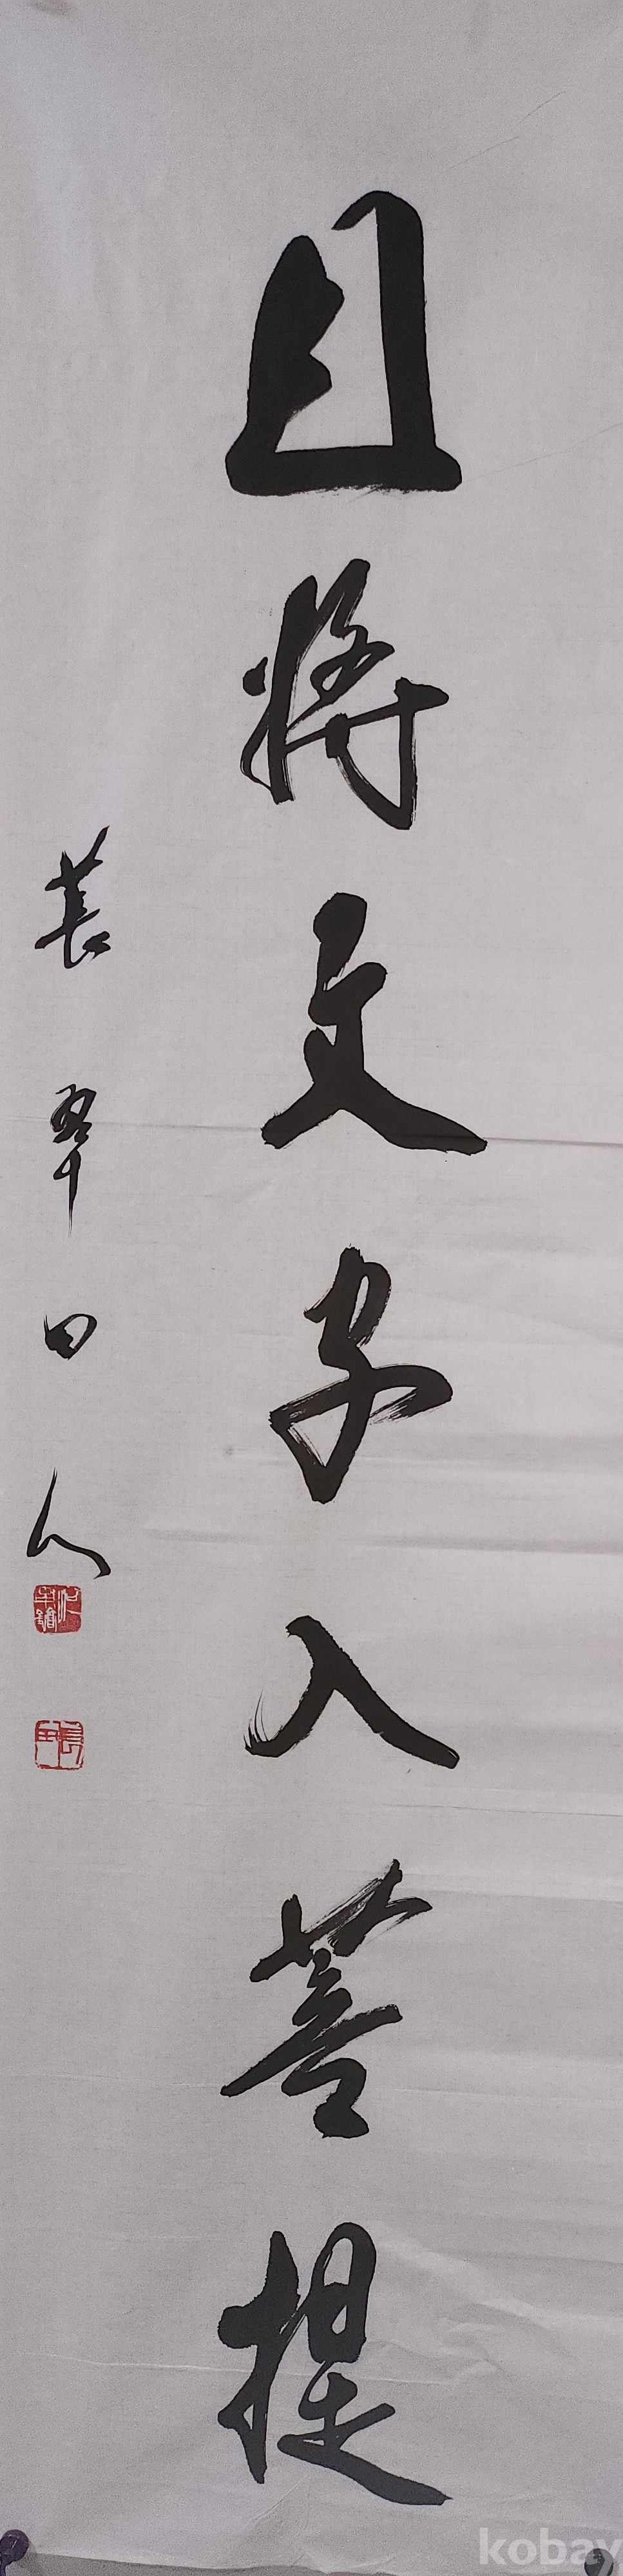 且將文字入菩提
萇翠田人
kobay